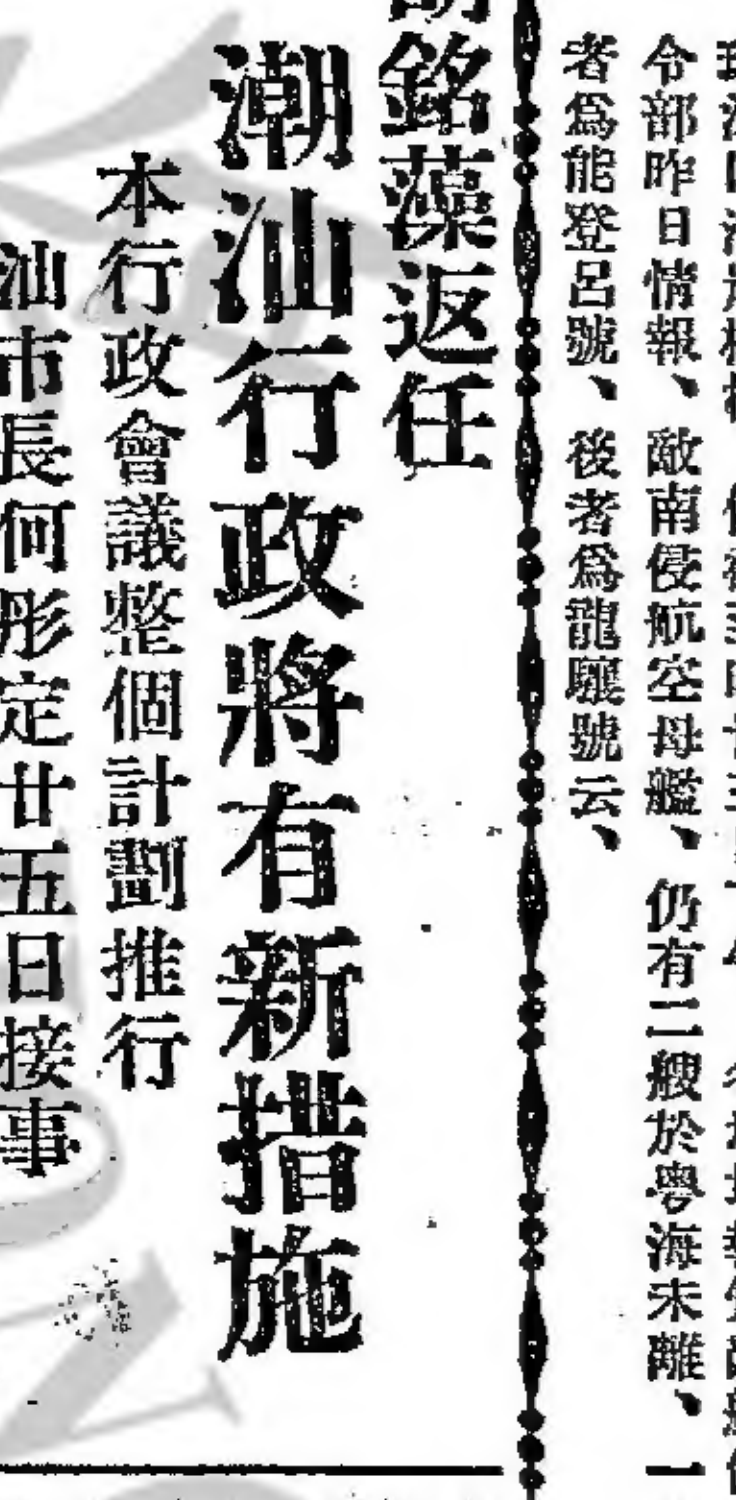 令部昨日情報、敵南侵航空母艦、仍有二艘於粵海未離、一
者為能登呂號、後者為龍驤號云、
銘藻返任
潮汕行政將有新措施
本行政會議整個計劃推行
汕市長何彤定廿五日接事